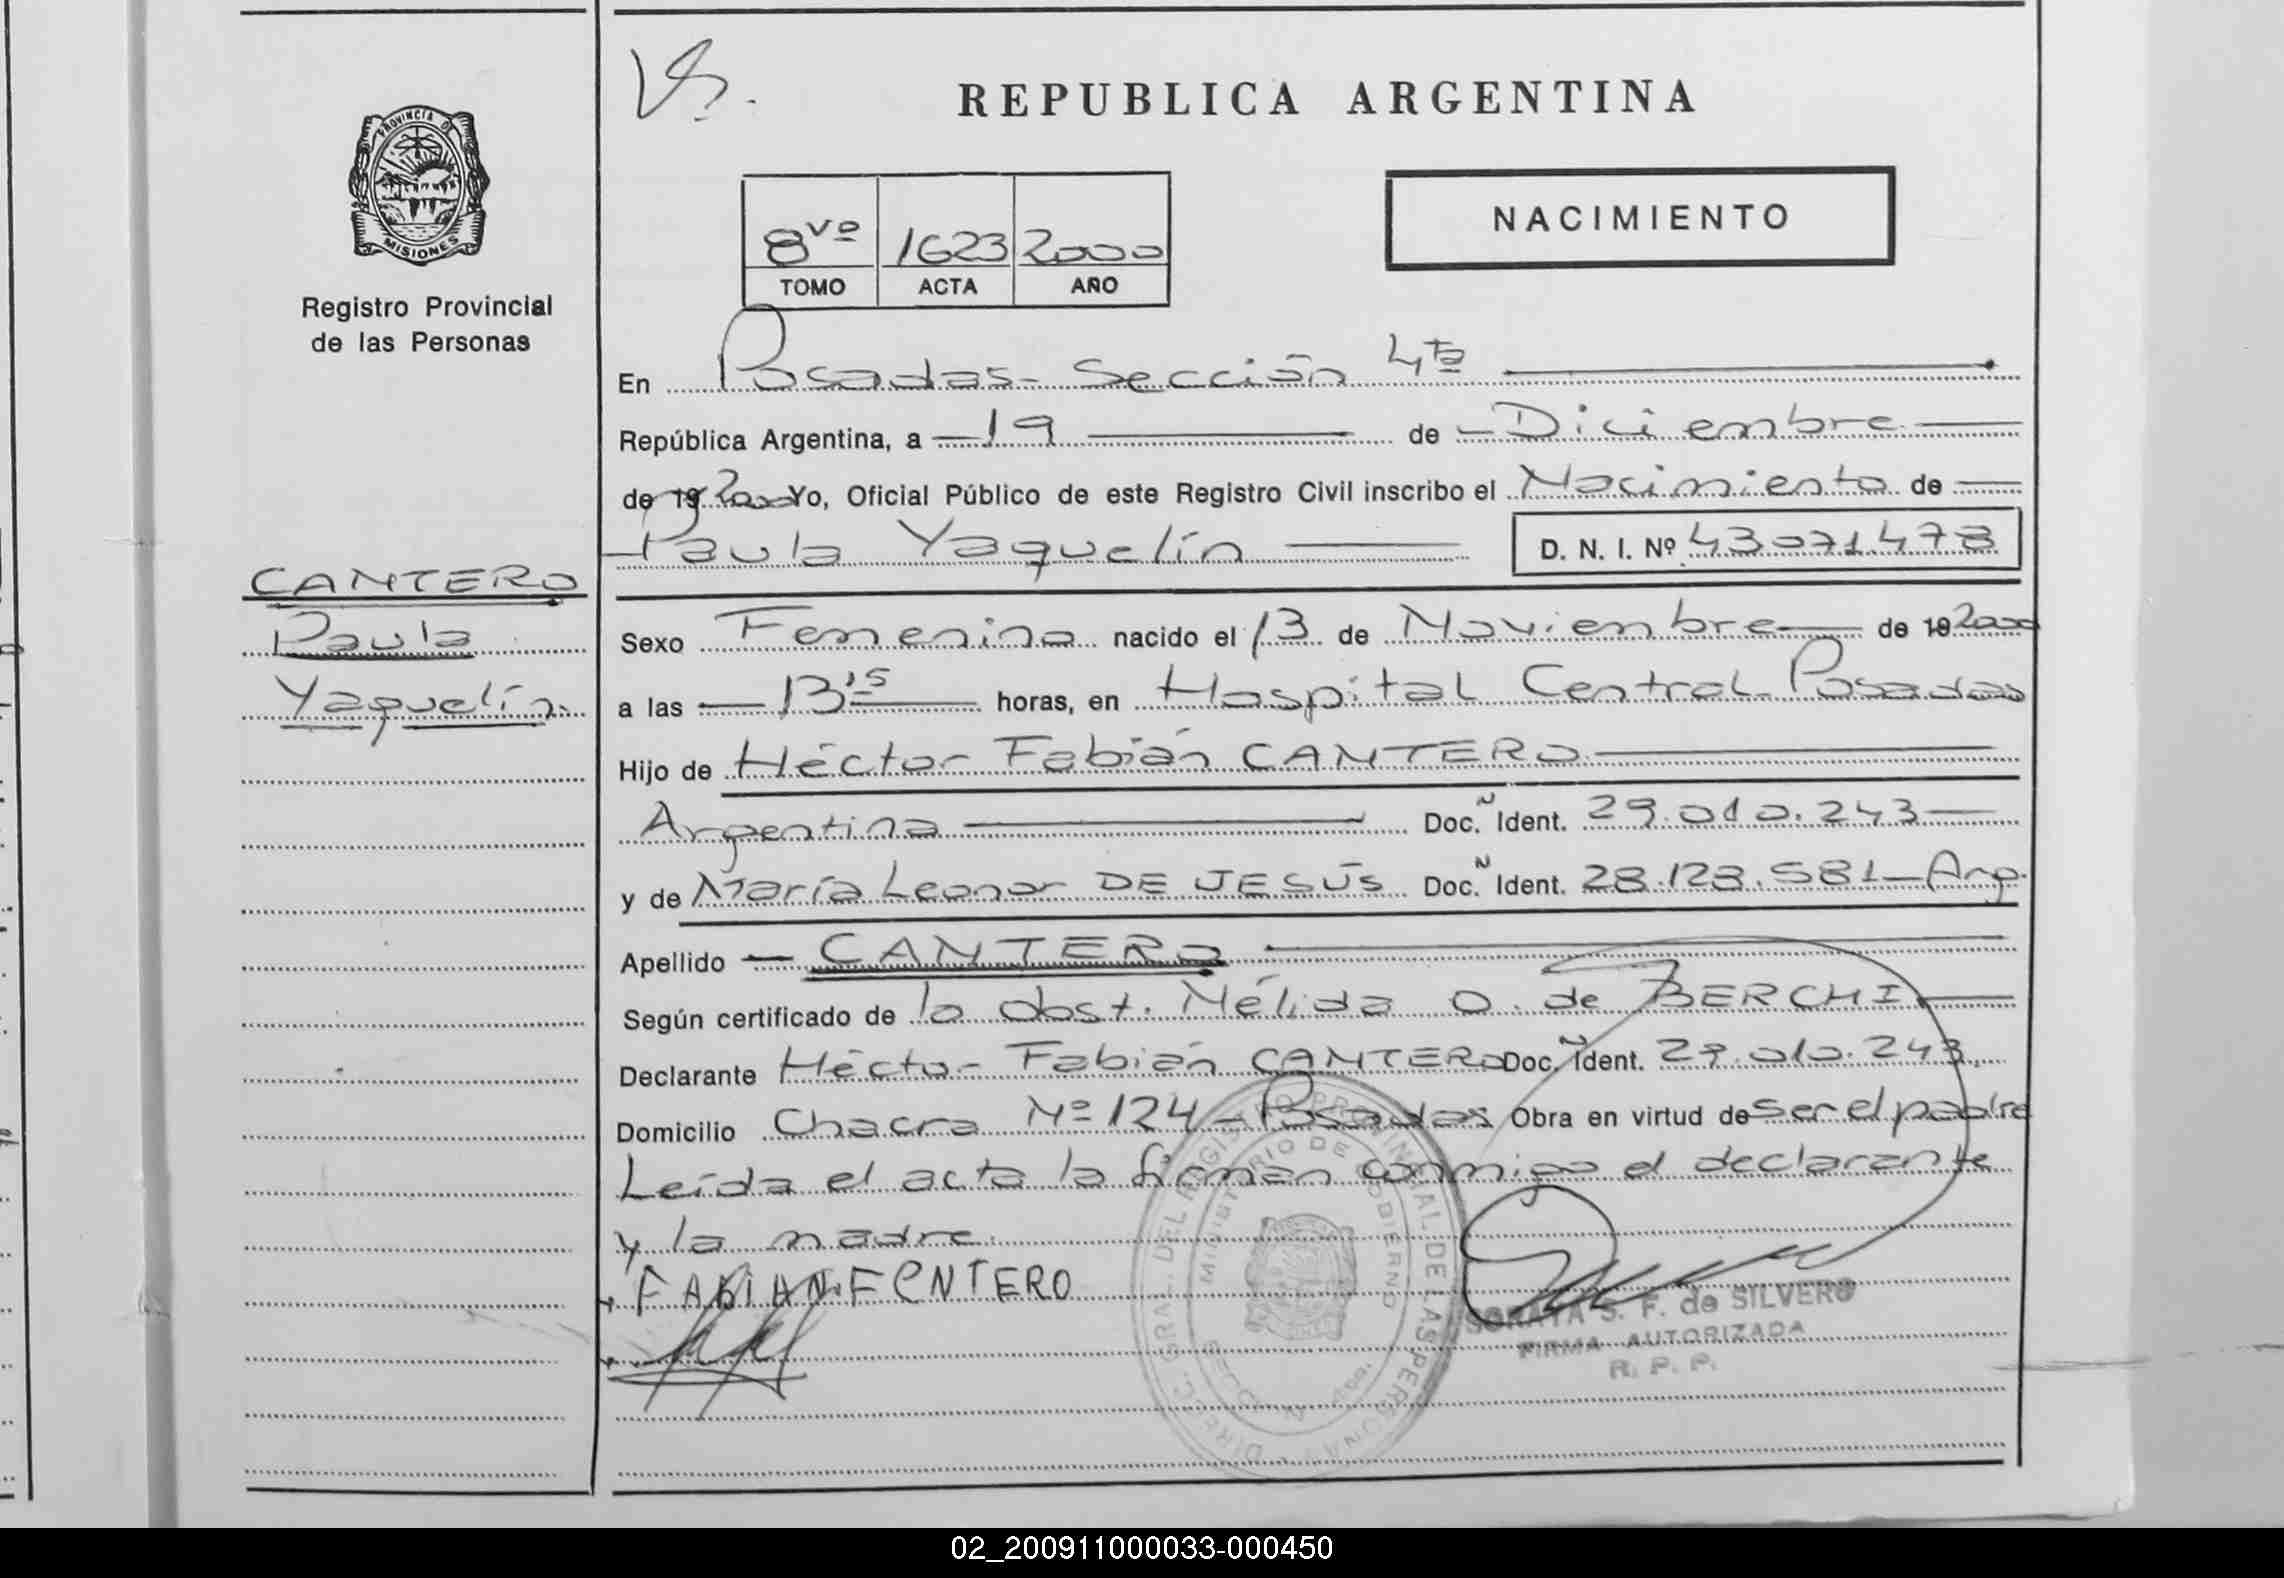 REPUBLICA ARGENTINA
PROVINCIA DE
MISIONES
Registro Provincial
de las Personas
NACIMIENTO
8vo 1623 2000
TOMO ACTA AÑO
En Posadas - Sección 4ta
República Argentina, a 19 de Diciembre
de 19 2000 Yo, Oficial Público de este Registro Civil inscribo el Nacimiento de
Paula Yaquelín D. N. I. Nº 43071478
CANTERO
Paula
Yaquelín
Sexo Femenino nacido el 13 de Noviembre de 19 2000
a las 13 15 horas, en Hospital Central - Posadas
Hijo de Héctor Fabián CANTERO
Argentina Doc. Ñ Ident. 29.010.243
y de María Leonor DE JESÚS Doc. Ñ Ident. 28.128.581 - Arg.
Apellido CANTERO
Según certificado de la obst. Nélida O. de BERCHI
Declarante Héctor Fabián CANTERO Doc. Ñ Ident. 29.010.243
Domicilio Chacra Nº 124 - Posadas Obra en virtud de ser el padre
Leída el acta la firman conmigo el declarante
y la madre.
FABIAN
DIREC. GRAL. DEL REGISTRO PROVINCIAL DE LAS PERSONAS
MINISTERIO DE GOBIERNO
SORAYA S. F. de SILVERO
FIRMA AUTORIZADA
R. P. P.
02_200911000033-000450